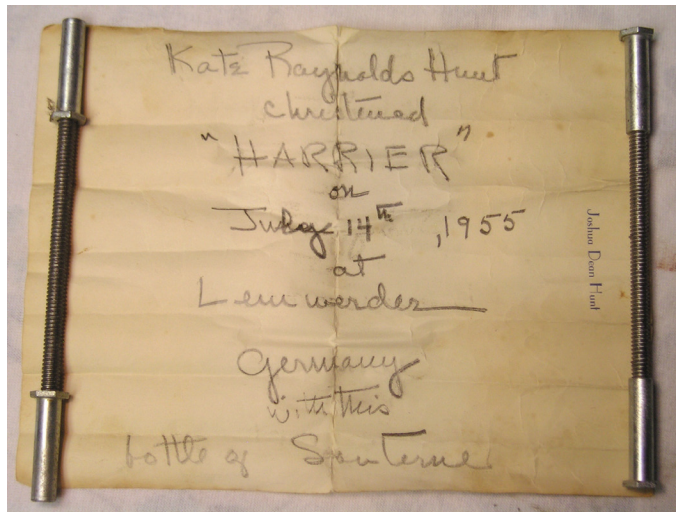 Kate Raynolds Hunt
christened
"HARRIER"
on
July 14th, 1955
at
Lemwerder
Germany
with this
bottle of Sauterne
Joshua Dean Hunt